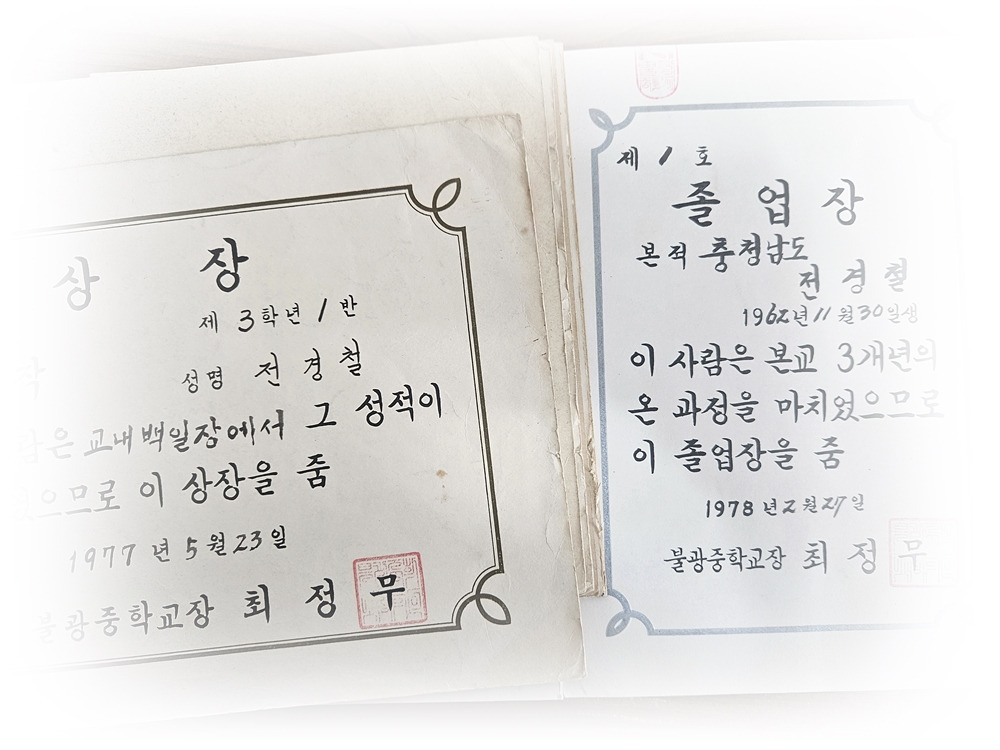 상 장
제 3학년 1 반
성명 전 경 철
은 교내백일장에서 그 성적이
으므로 이 상장을 줌
1977 년 5 월 23 일
불광중학교장 최 정 무
제 1 호
졸 업 장
본 적 충청남도
전 경 철
1962년 11월 30일생
이 사람은 본교 3개년의
온 과정을 마치었으므로
이 졸업장을 줌
1978 년 2 월 27 일
불광중학교장 최 정 무